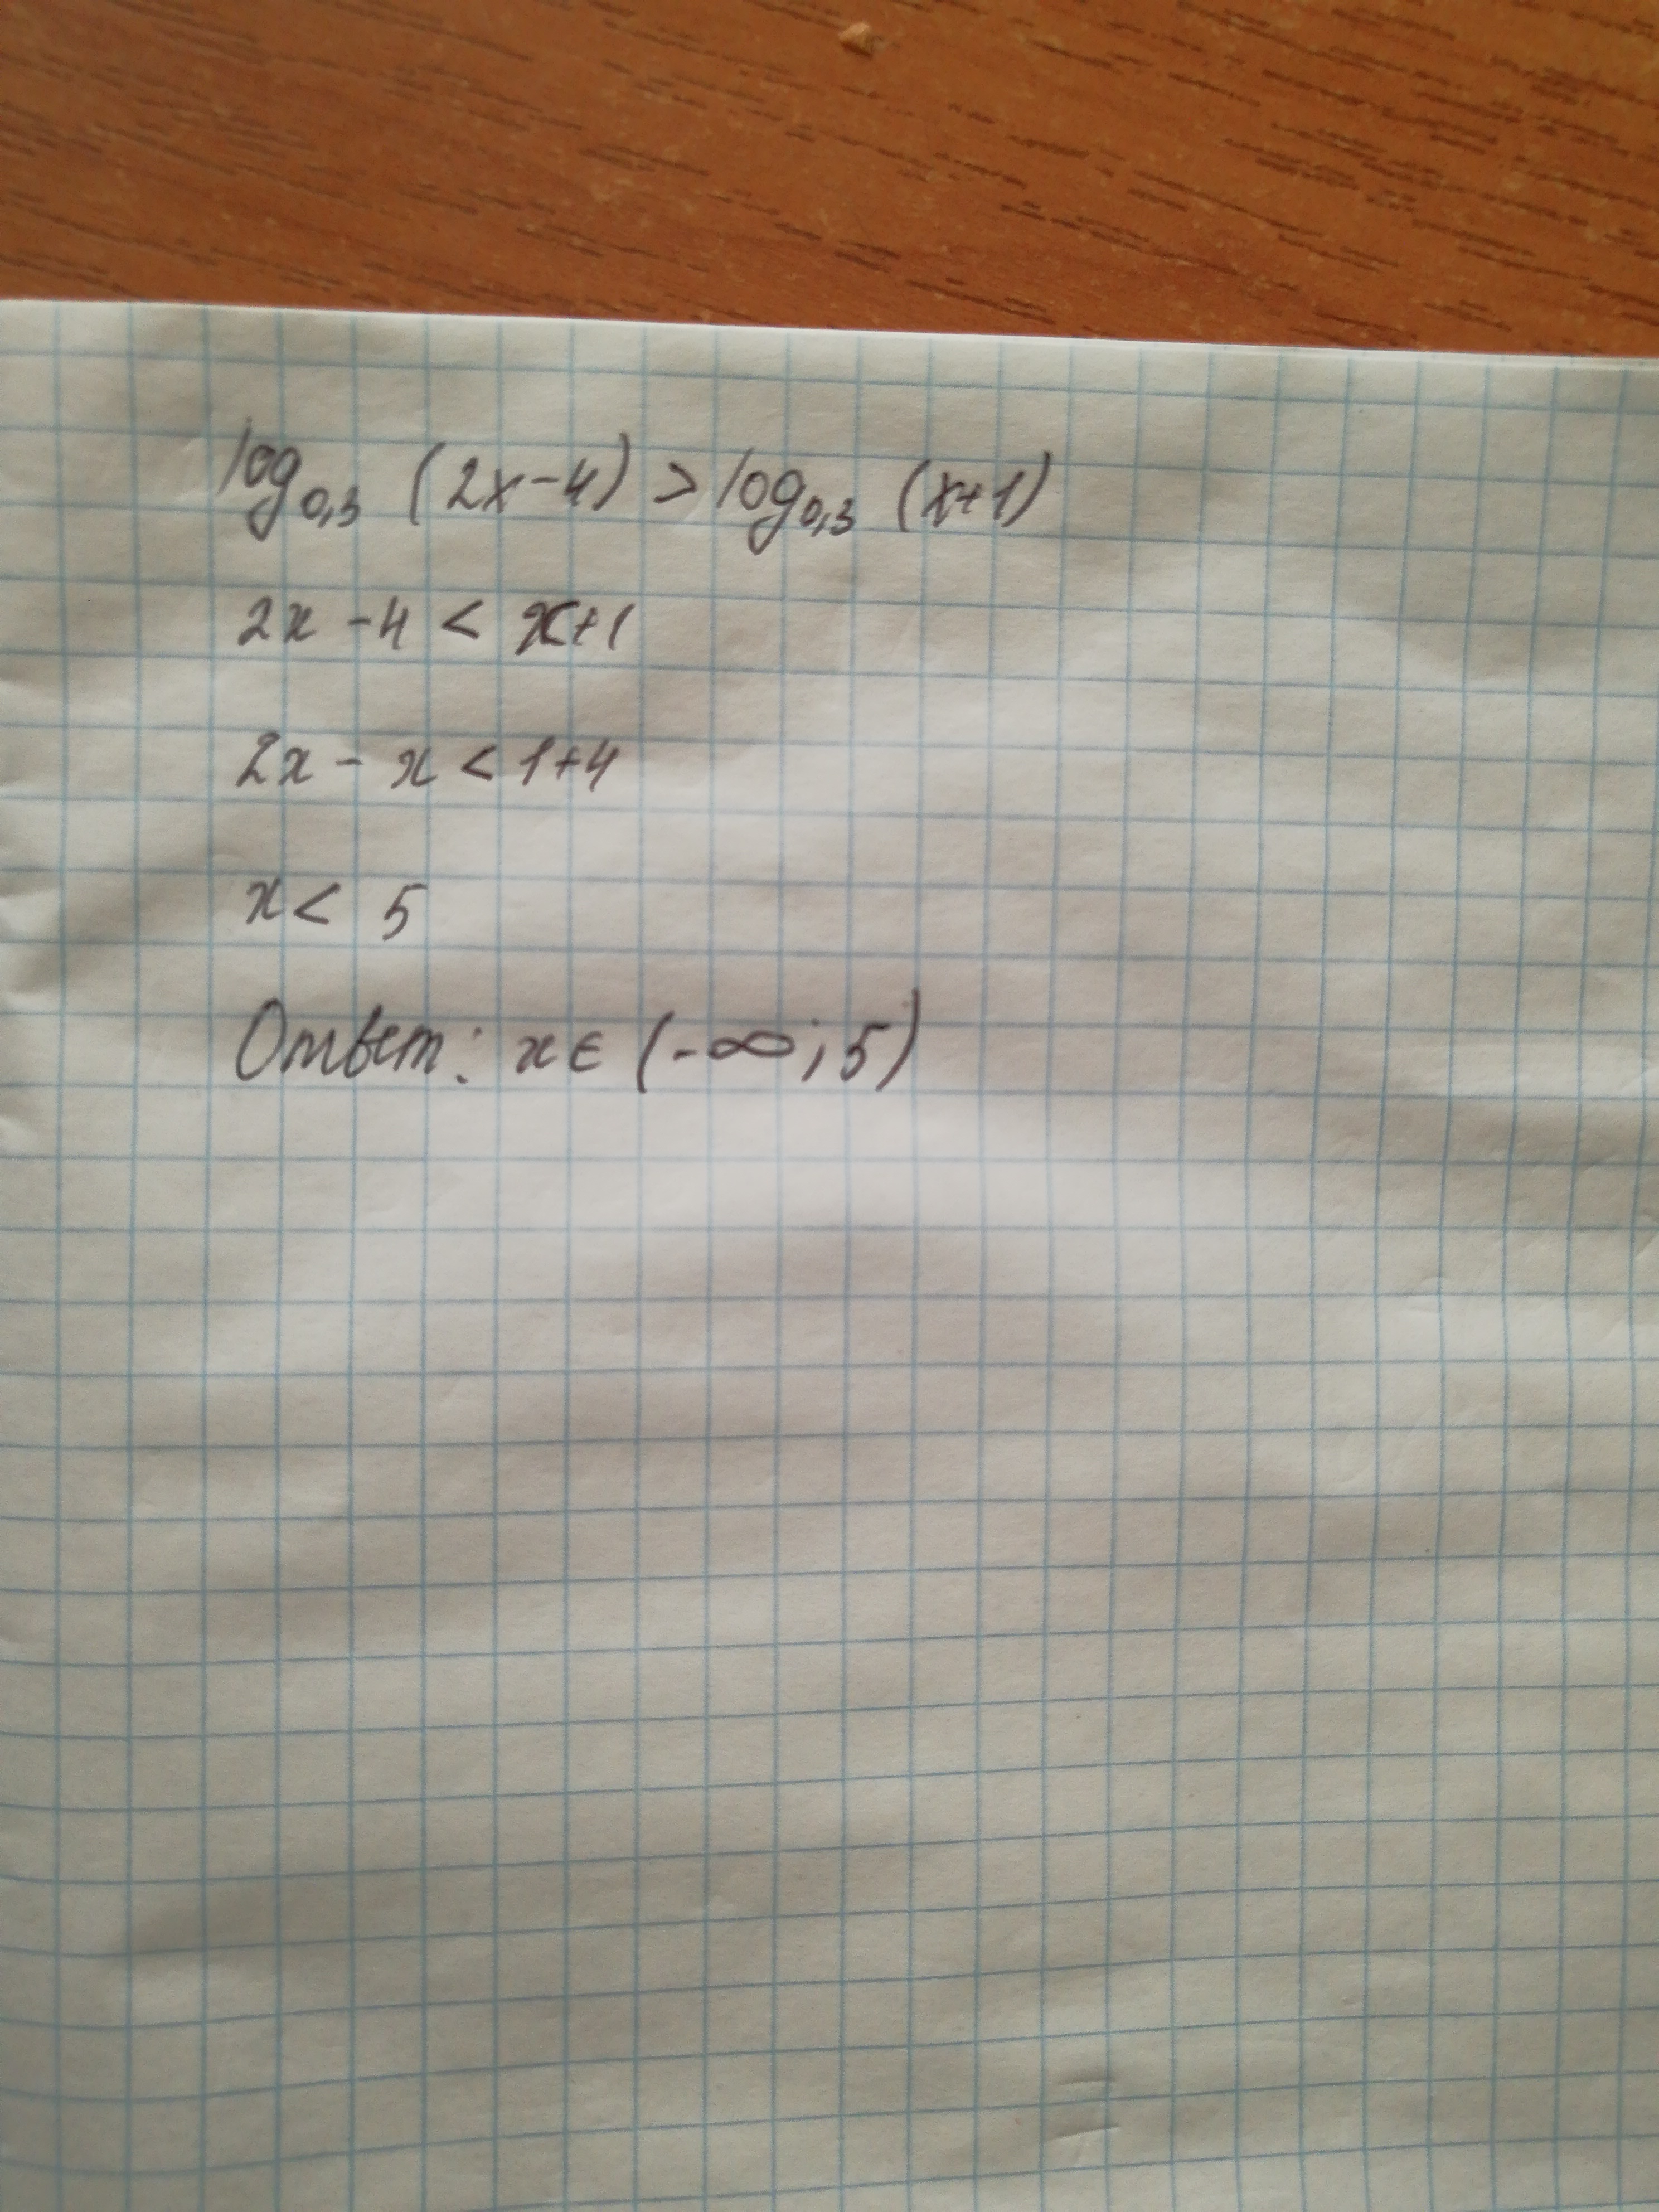 log₀,₃ (2x-4) > log₀,₃ (x+1)
2x - 4 < x+1
2x - x < 1+4
x < 5
Ответ: x ∈ (-∞; 5)